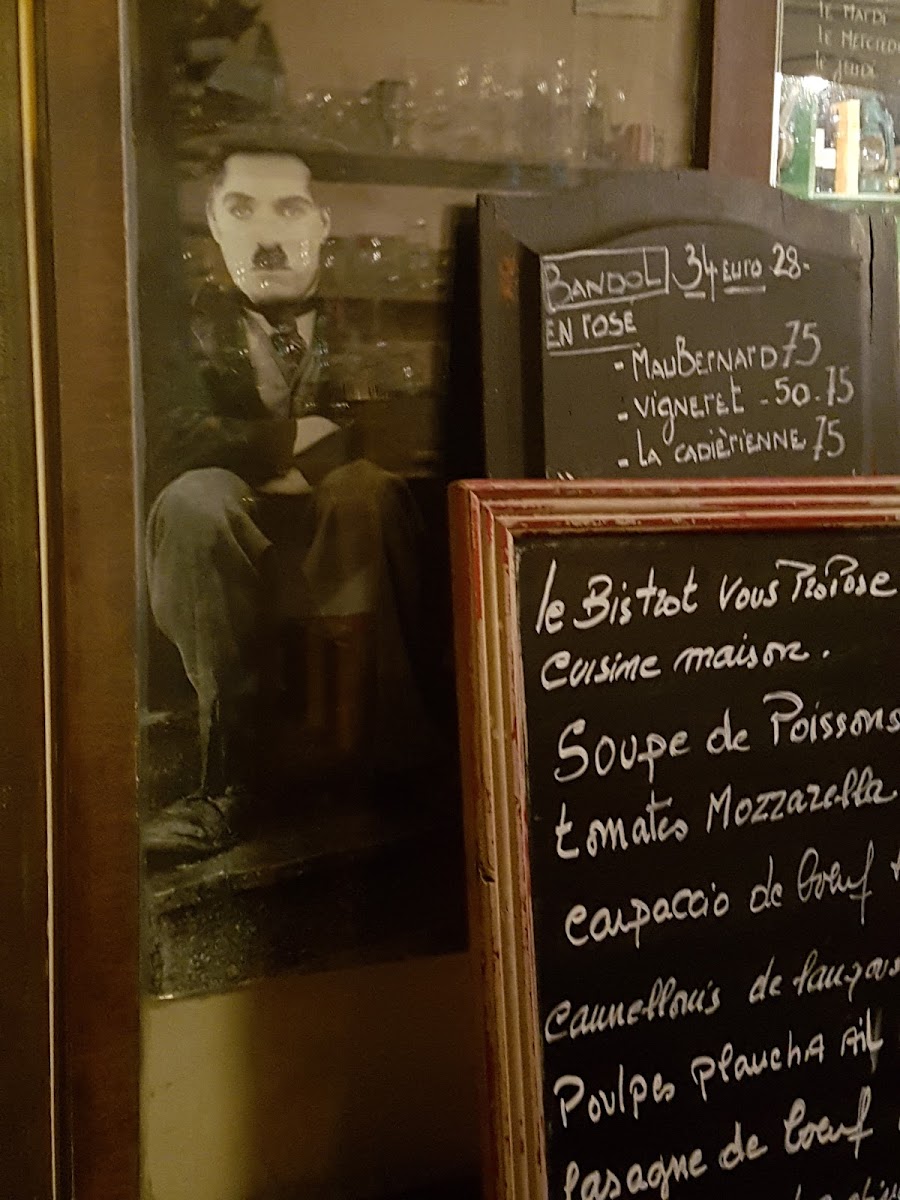 le MARDI
le MERCREDI
le jeudi
BANDOL 34 EURO 28-
EN rosé
- MAUBERNARD 75
- VIGNERET - 50-75
- LA CADIÈRIENNE 75
le Bistrot vous Propose
cuisine maison.
Soupe de Poissons
tomates Mozzarella
carpaccio de bœuf
cannellonis de langous
Poulpes plancha ail
lasagne de bœuf